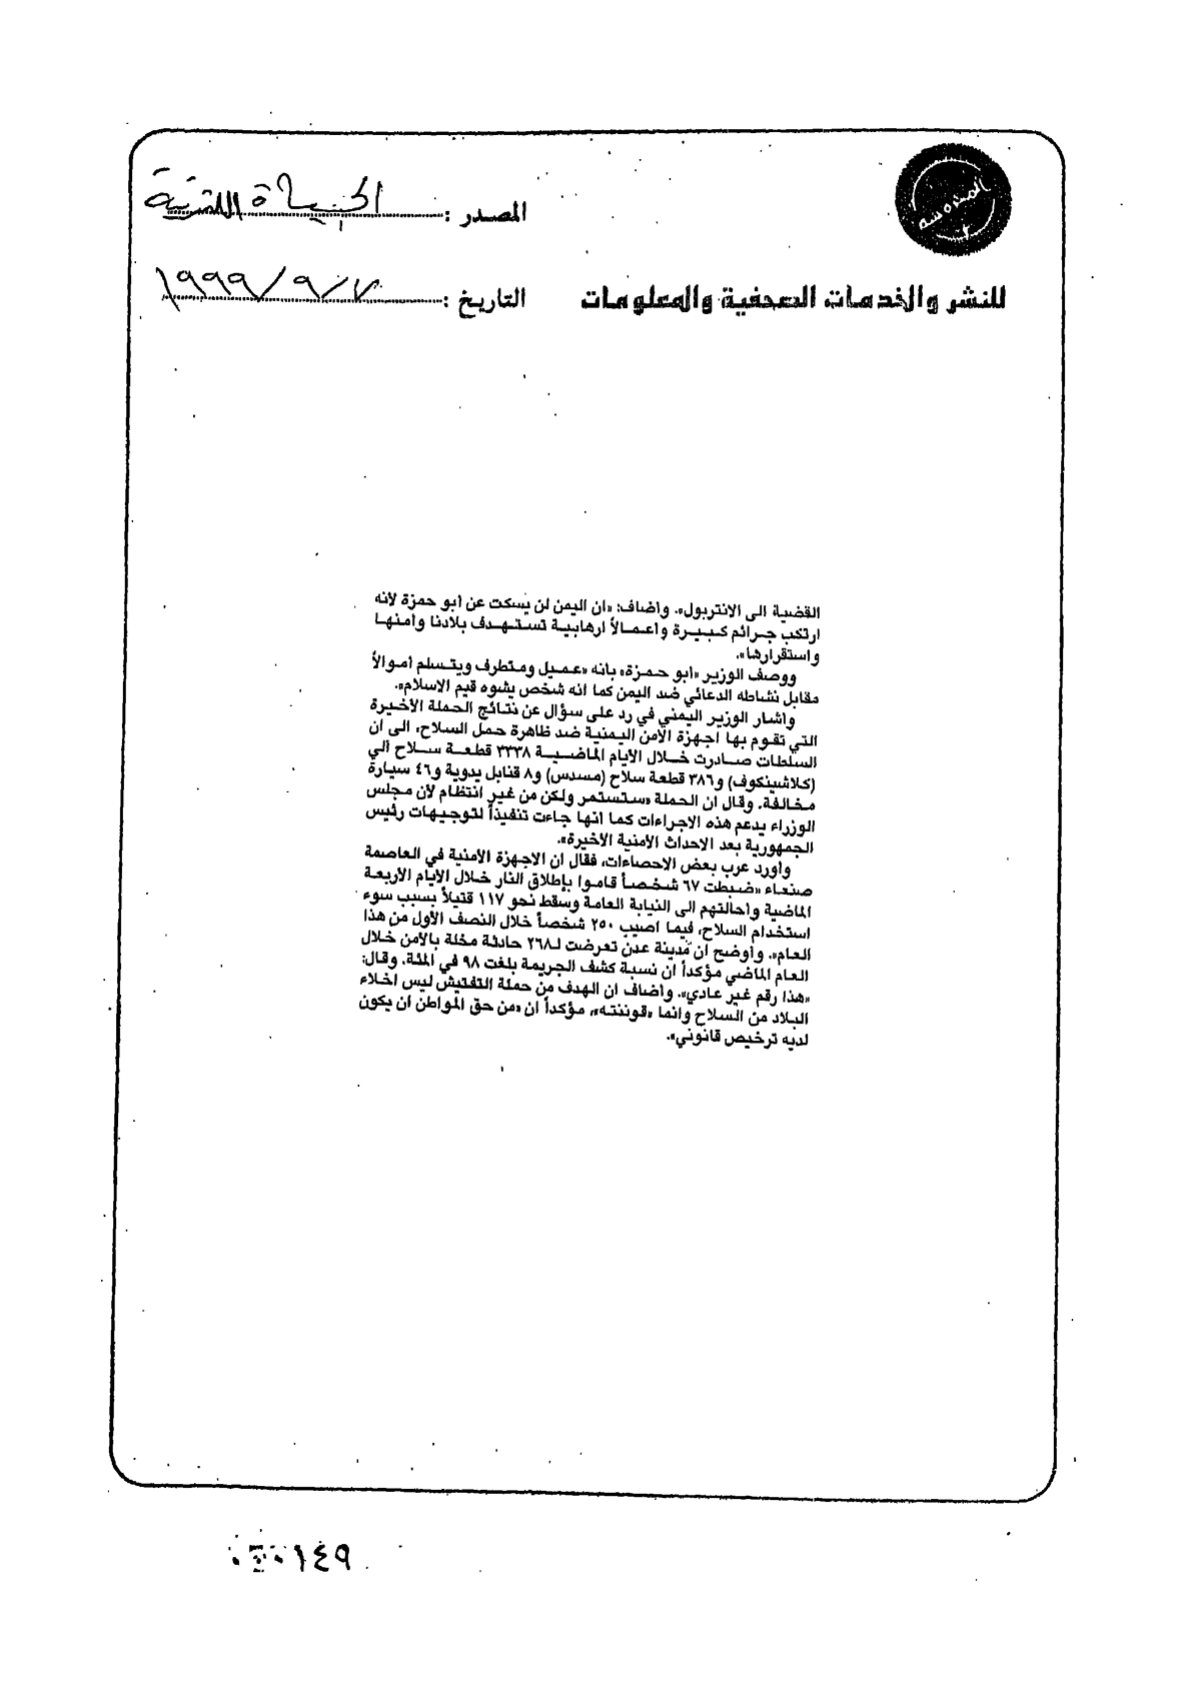 المحروسة
المصدر : الحياة اللندنية
للنشر والخدمات الصحفية والمعلومات
التاريخ : ٧/ ٩/ ١٩٩٩
القضية الى الانتربول». واضاف: «ان اليمن لن يسكت عن ابو حمزة لأنه
ارتكب جرائم كبيرة واعمالاً ارهابية تستهدف بلادنا وامنها
واستقرارها».
ووصف الوزير «ابو حمزة» بانه «عميل ومتطرف ويتسلم اموالاً
مقابل نشاطه الدعائي ضد اليمن كما انه شخص يشوه قيم الاسلام».
واشار الوزير اليمني في رد على سؤال عن نتائج الحملة الأخيرة
التي تقوم بها اجهزة الأمن اليمنية ضد ظاهرة حمل السلاح، الى ان
السلطات صادرت خلال الأيام الماضية ٣٣٣٨ قطعة سلاح آلي
(كلاشينكوف) و٣٨٦ قطعة سلاح (مسدس) و٨ قنابل يدوية و٤٦ سيارة
مخالفة. وقال ان الحملة «ستستمر ولكن من غير انتظام لأن مجلس
الوزراء يدعم هذه الاجراءات كما انها جاءت تنفيذاً لتوجيهات رئيس
الجمهورية بعد الاحداث الأمنية الأخيرة».
وأورد عرب بعض الاحصاءات، فقال ان الاجهزة الأمنية في العاصمة
صنعاء «ضبطت ٦٧ شخصاً قاموا بإطلاق النار خلال الأيام الأربعة
الماضية واحالتهم الى النيابة العامة وسقط نحو ١١٧ قتيلاً بسبب سوء
استخدام السلاح، فيما اصيب ٢٥٠ شخصاً خلال النصف الأول من هذا
العام». وأوضح ان مدينة عدن تعرضت لـ٢٦٨ حادثة مخلة بالأمن خلال
العام الماضي مؤكداً ان نسبة كشف الجريمة بلغت ٩٨ في المئة. وقال:
«هذا رقم غير عادي». واضاف ان الهدف من حملة التفتيش ليس اخلاء
البلاد من السلاح وانما «قوننته»، مؤكداً ان «من حق المواطن ان يكون
لديه ترخيص قانوني».
١٤٩